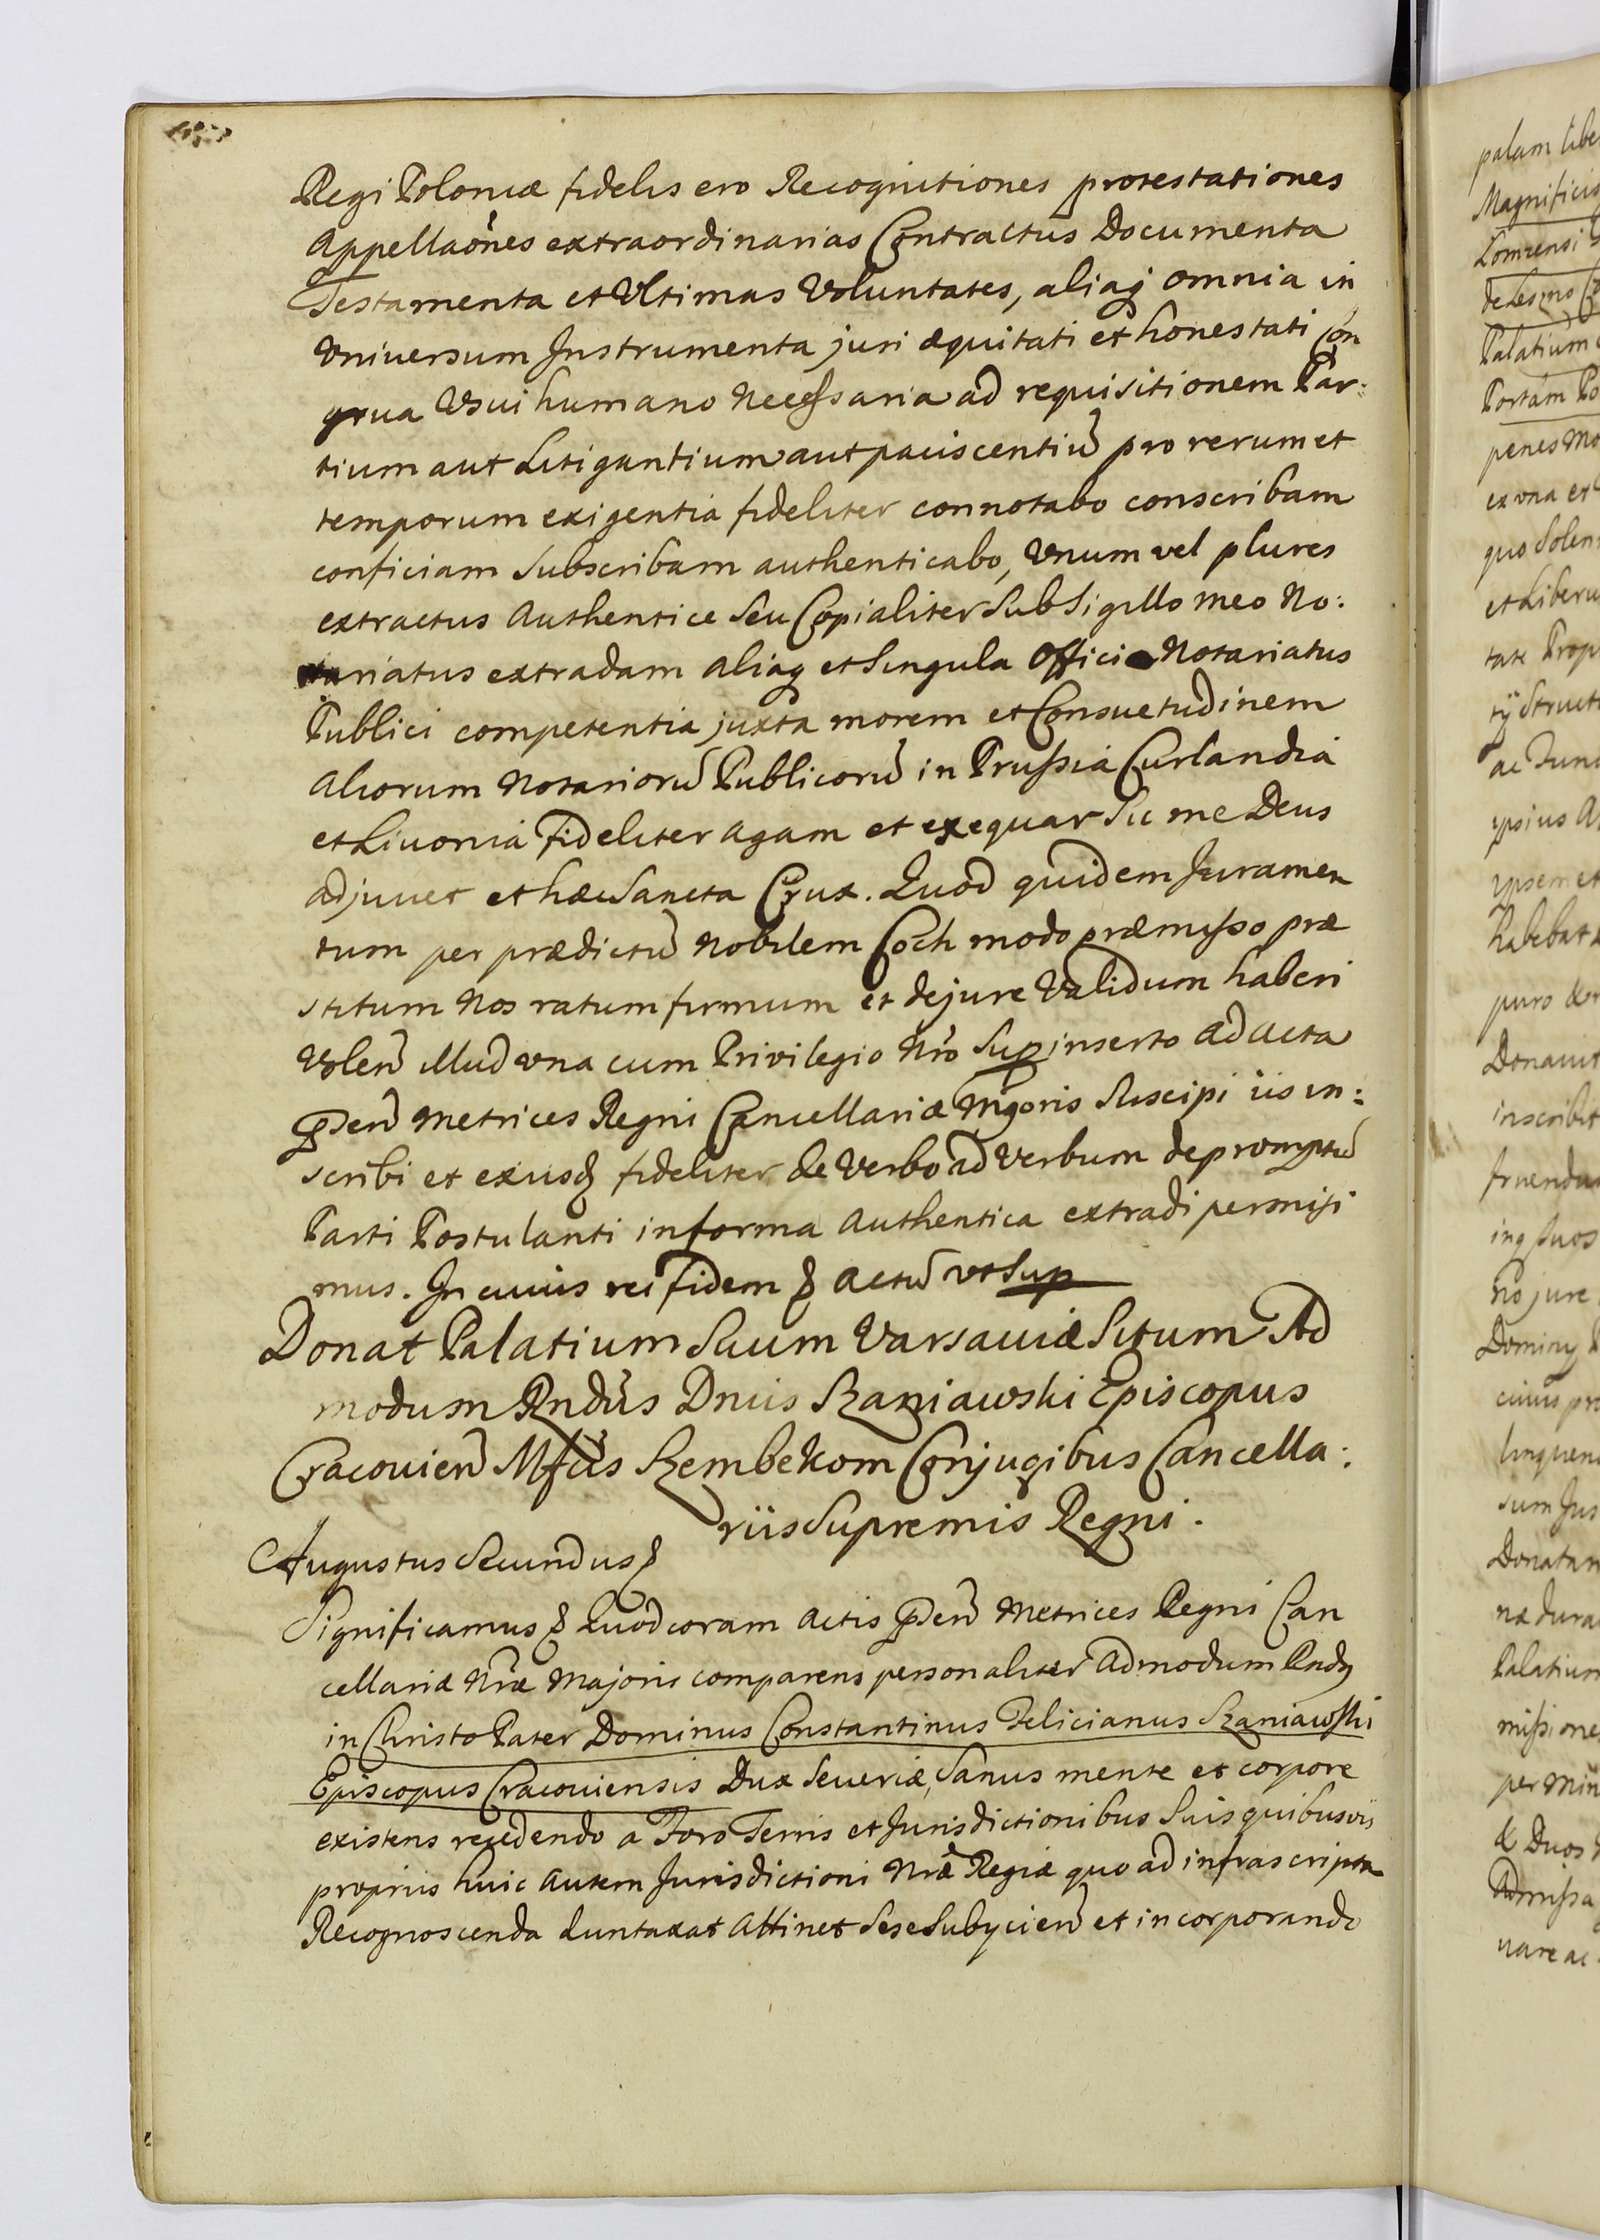 Regi Poloniæ fidelis ero Recognitiones protestationes
Appellaõnes extraordinarias Contractus Documenta
Testamenta et Vltimas Voluntates, aliaq omnia in
Vniuersum Instrumenta juri æquitati et honestati Con
grua Vsui humano Necessaria ad requisitionem Par:
tium aut Litigantium aut paciscentiũ pro rerum et
temporum exigentia fideliter connotabo conscribam
conficiam subscribam authenticabo, Vnum vel plures
extractus Authentice seu Copialiter sub Sigillo meo No:
tariatus extradam aliaq et singula Officio Notariatus
Publici competentia juxta morem et Consuetudinem
Aliorum Notariorũ Publicorũ in Prussia Curlandia
et Liuonia Fideliter agam et exequar Sic me Deus
adjuvet et hæc Sancta Crux. Quod quidem Juramen
tum per prædictũ Nobilem Coch modo præmisso præ
stitum Nos ratum firmum et de jure Validum haberi
Volen̄ illud vna cum Privilegio Nr̃o Sup inserto ad acta
p̃sen̄ Metrices Regni Cancellariæ M̃goris Suscipi iis in:
scribi et exiusq fideliter de Verbo ad Verbum depromptũ
Parti Postulanti in forma Authentica extradi permisi
mus. In cuius rei Fidem & Actũ vt Sup
Donat Palatium Suum Varsauiæ Situm Ad
modum Rndũs Dnũs Szaniawski Episcopus
Cracouien̄ Mfcis Szembekom Conjugibus Cancella:
riis Supremis Regni.
Augustus Secundus &
Significamus & Quod coram Actis p̃sen̄ Metrices Regni Can
cellariæ Nr̃æ Majoris comparens personaliter Admodum Rndq
in Christo Pater Dominus Constantinus Felicianus Szaniawski
Episcopus Cracouiensis Dux Seueriæ, Sanus mente et corpore
existens recedendo a Foro Terris et Jurisdictionibus Suis quibusvis
propriis huic autem Jurisdictioni Nr̃æ Regiæ quo ad infrascripta
Recognoscenda duntaxat Attinet Sese Subijcien̄ et incorporando
palam libe
Magnificis
Lomzensi
Palatium
Portam Po
penes Mo
ex vna et
quo Solen
et Liberu
tate Prop
ac Fund
ipsius A
ipsemet
habebat
puro &
Donauit
inscribit
fruendu
inq Suos
no jure
cuius pro
linquen
sum Jus
Donatam
næ dura
Palatium
missione
per Min
& Duos
Admissa
uare ac